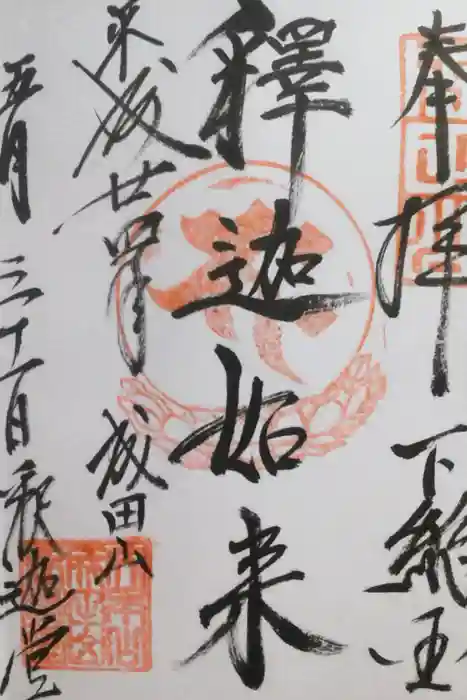 奉拝
下総国
釋迦如来
平成廿四年
成田山
五月三十一日
釈迦堂